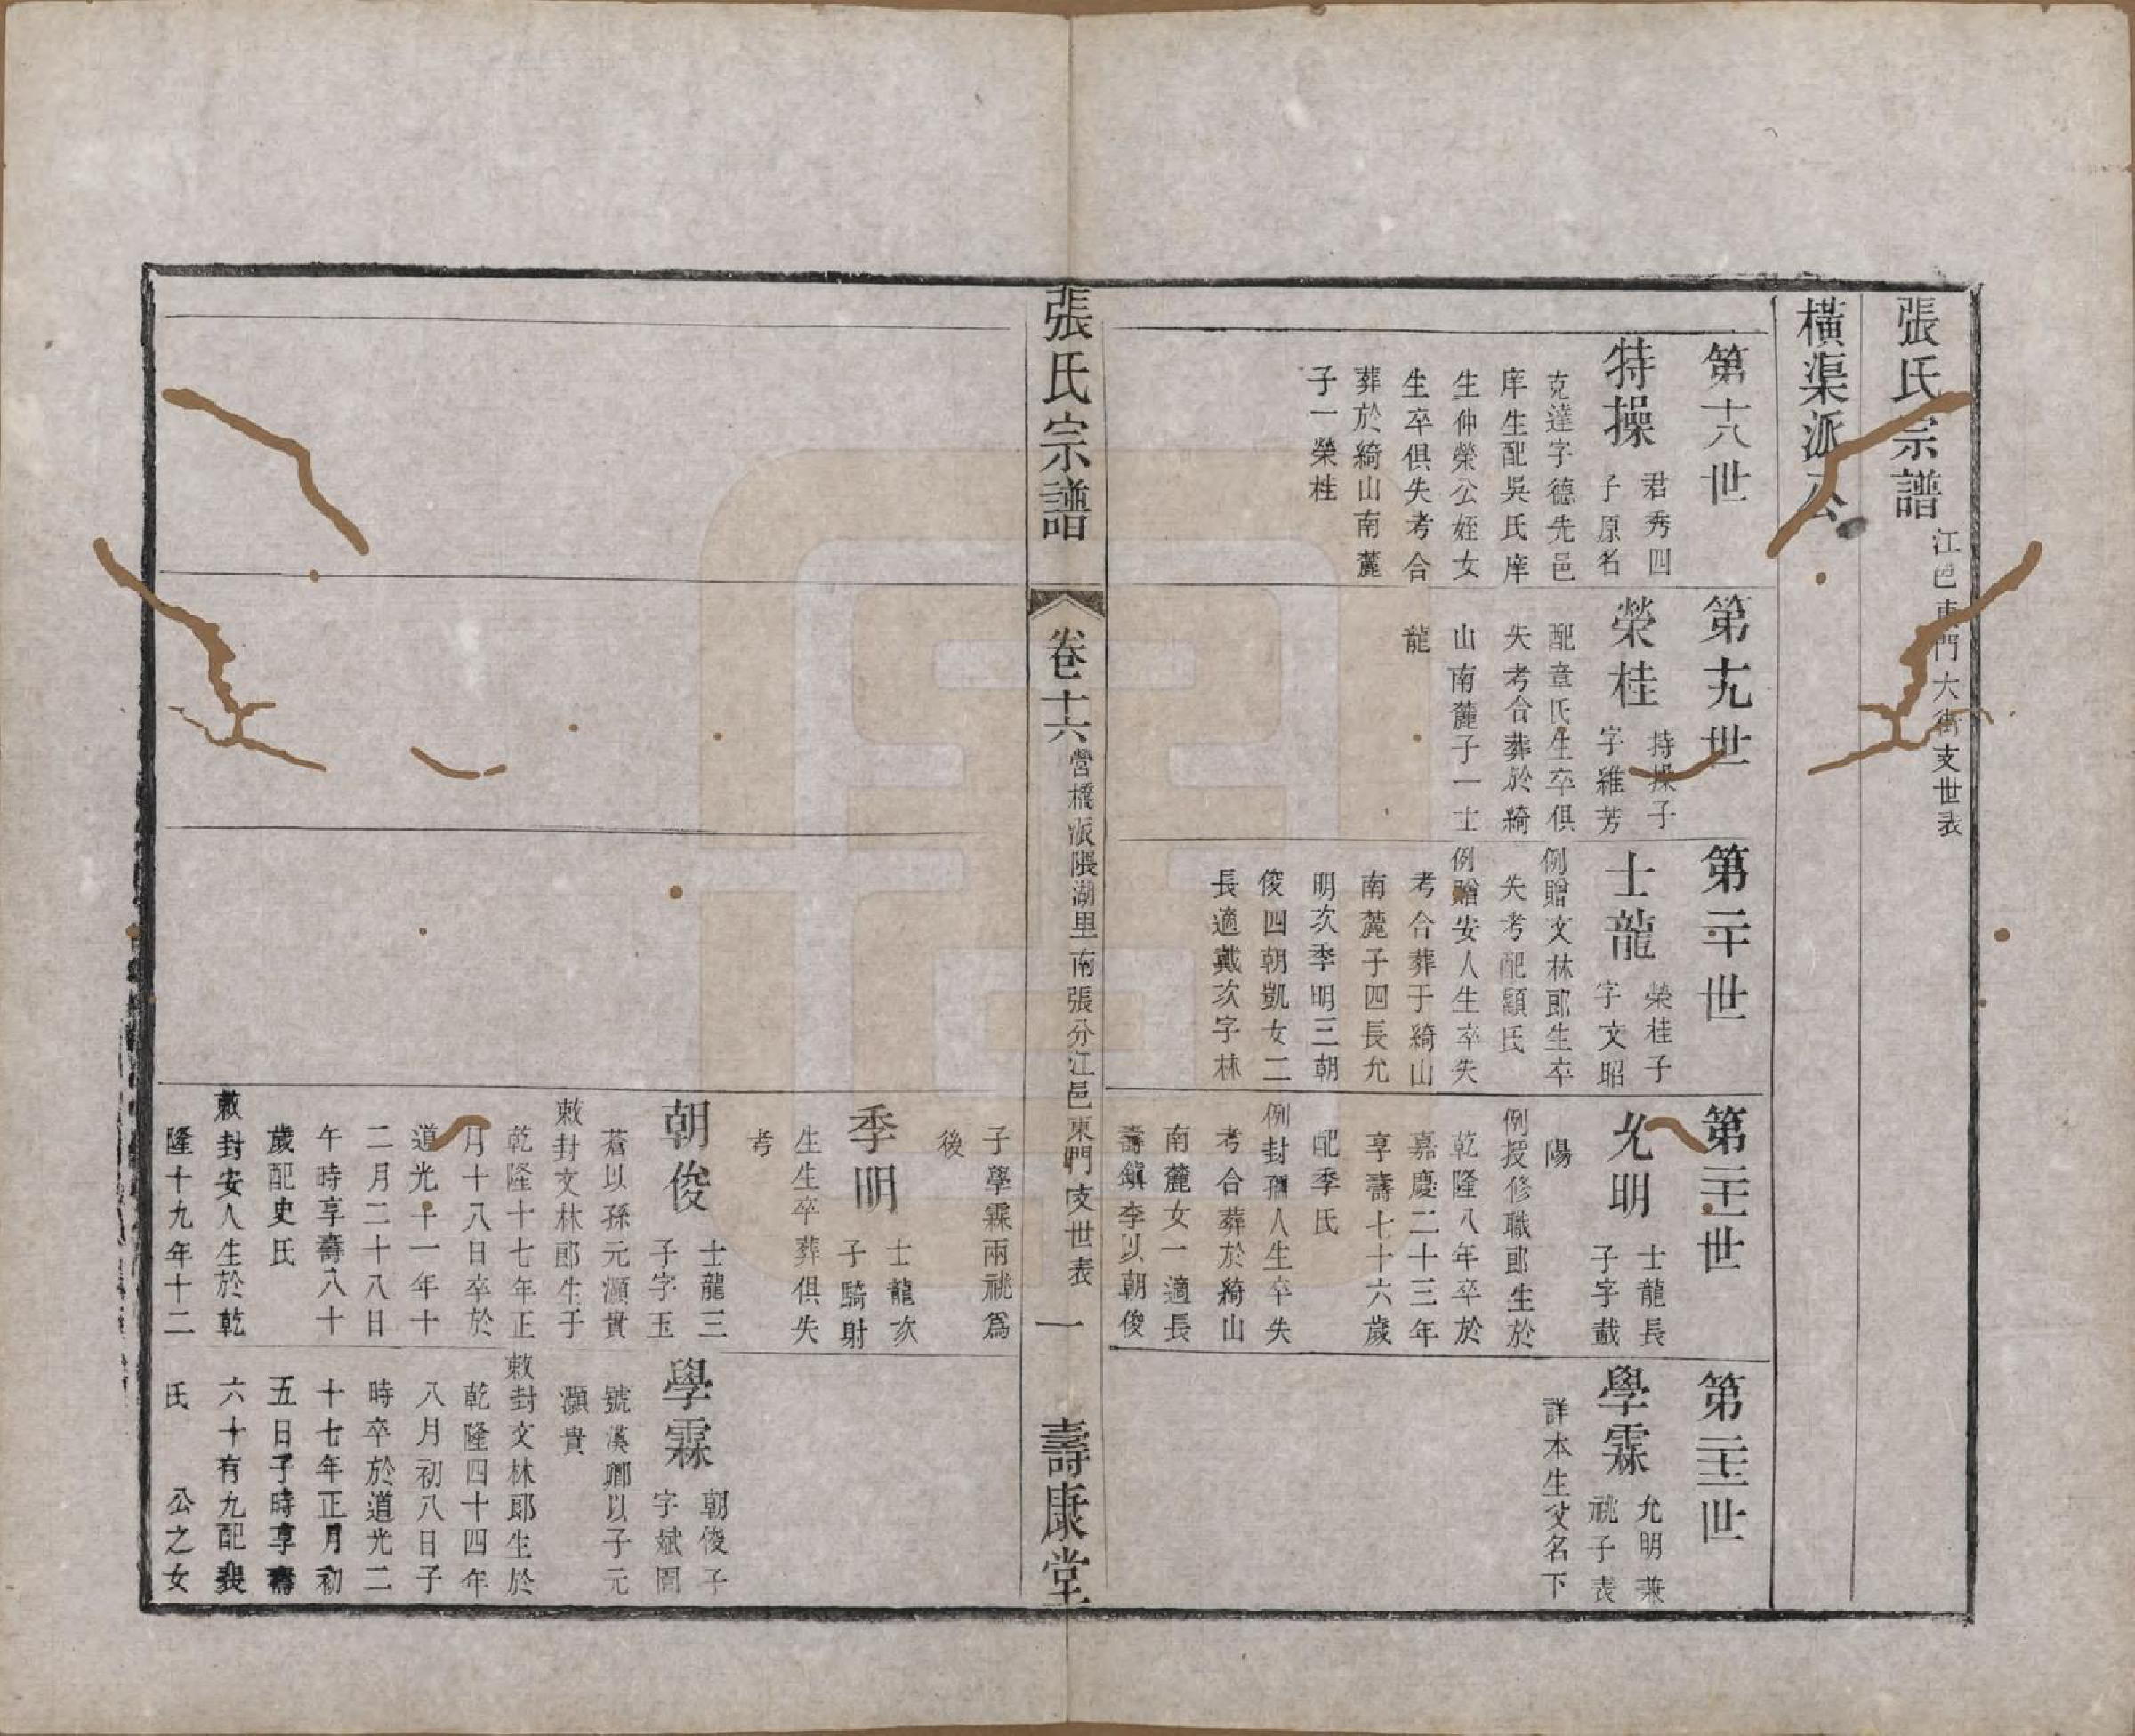 張氏宗譜
江邑東門大街支世表
橫渠派公
第十八世
特操
君秀四
子原名
克達字德先邑
庠生配吳氏庠
生仲榮公姪女
生卒俱失考合
葬於綺山南麓
子一榮桂
第十九世
榮桂
持操子
字維芳
配章氏生卒俱
失考合葬於綺
山南麓子一士
龍
第二十世
士龍
榮桂子
字文昭
例贈文林郎生卒
失考配顧氏
例贈安人生卒失
考合葬于綺山
南麓子四長允
明次季明三朝
俊四朝凱女二
長適戴次字林
第二十一世
允明
士龍長
子字載
陽
例授修職郎生於
乾隆八年卒於
嘉慶二十三年
享壽七十六歲
配季氏
例封孺人生卒失
考合葬於綺山
南麓女一適長
壽鎮李以朝俊
第二十二世
學霖
允明兼
祧子表
詳本生父名下
張氏宗譜
卷十六
營橋派隈湖里南張分江邑東門支世表
一
壽康堂
子學霖兩祧爲
後
季明
士龍次
子騎射
生生卒葬俱失
考
朝俊
士龍三
子字玉
蒼以孫元灝貴
敕封文林郎生于
乾隆十七年正
月十八日卒於
道光十一年十
二月二十八日
午時享壽八十
歲配史氏
敕封安人生於乾
隆十九年十二
學霖
朝俊子
字斌圃
號漢卿以子元
灝貴
敕封文林郎生於
乾隆四十四年
八月初八日子
時卒於道光二
十七年正月初
五日子時享壽
六十有九配裴
氏 公之女